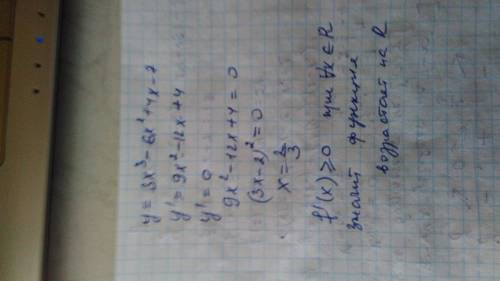 y = 3x³ - 6x² + 4x - 7
y' = 9x² - 12x + 4
y' = 0
9x² - 12x + 4 = 0
(3x - 2)² = 0
x = 2/3
f'(x) ≥ 0 при ∀x ∈ R
значит функция
возрастает на R